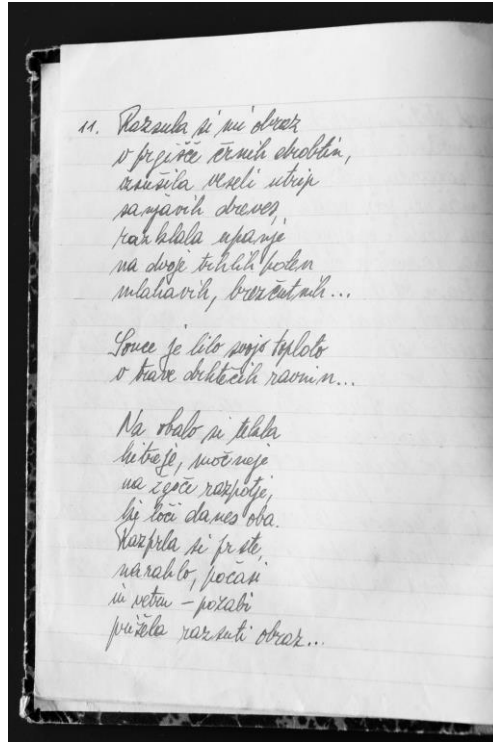 11. Razsula si mi obraz
v prgišče črnih drobtin,
izsušila veseli utrip
sanjavih dreves,
razklala upanje
na dvoje trhlih polen
mlahavih, brezčutnih...
Sonce je lilo svojo toploto
v trave drhtečih ravnin...
Na obalo si tekla
hitreje, močneje
na žgoče razpotje,
ki loči danes oba.
Razprla si prste,
narahlo, počasi
in vetru – pozabi
pričela razsuti obraz...